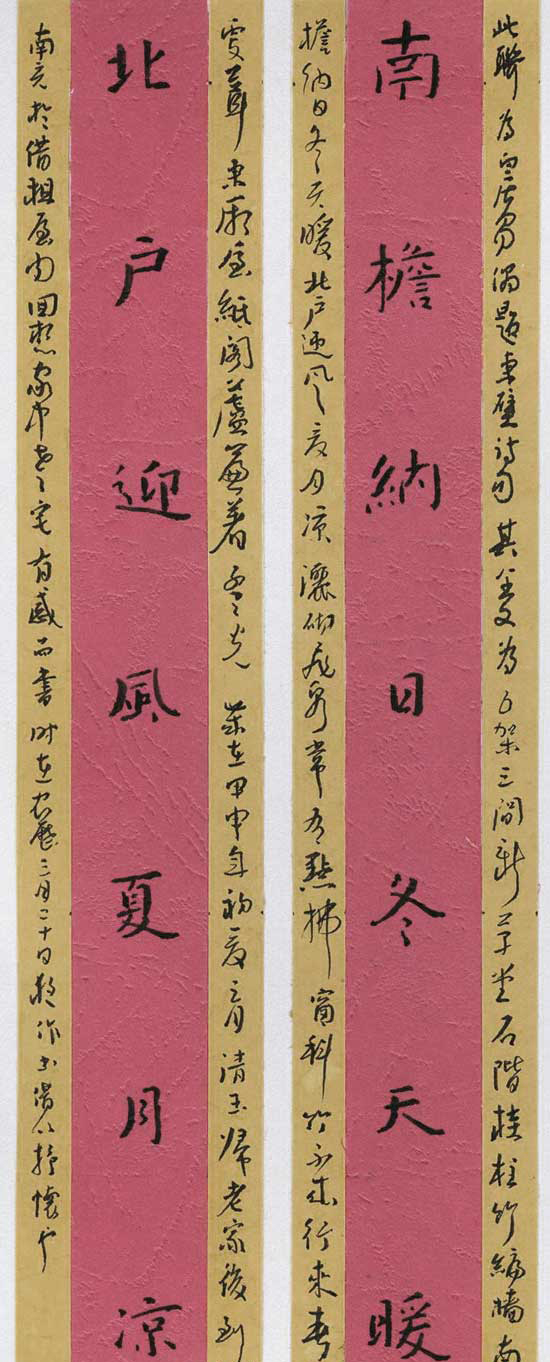 此聯為白居易偶題東壁詩句其全文為五架三間新草堂石階桂柱竹編墻南
南檐納日冬天暖
檐納日冬天暖北戶迎風夏月凉灑砌飛泉常有點拂窗斜竹不成行來春
更葺東廂屋紙閣蘆簾著孟光 歲在甲申年初夏三月清玉歸老家後到
北戶迎風夏月凉
南京於借租屋内回想家中老宅有感而書時在农歷三月二十日 作 以抒懷也